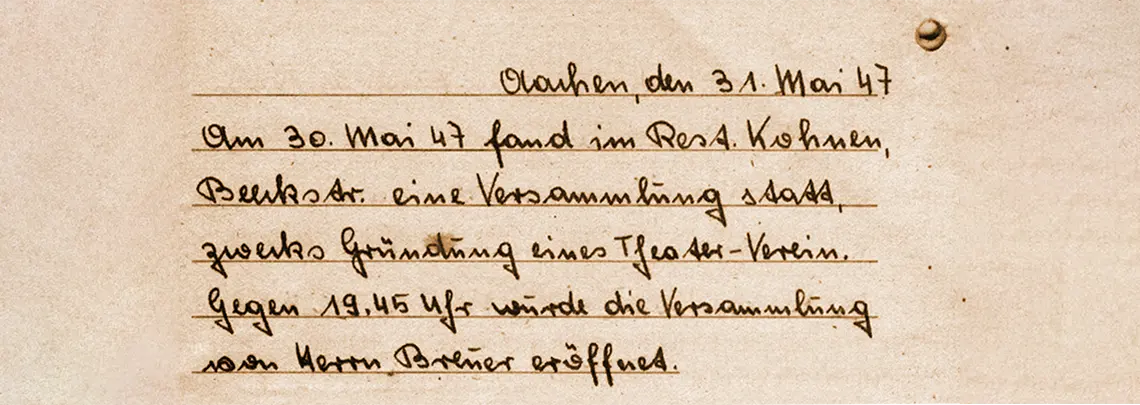 Aachen, den 31. Mai 47
Am 30. Mai 47 fand im Rest. Kohnen,
Beekstr. eine Versammlung statt,
zwecks Gründung eines Theater-Verein.
Gegen 19.45 Uhr wurde die Versammlung
von Herrn Breuer eröffnet.